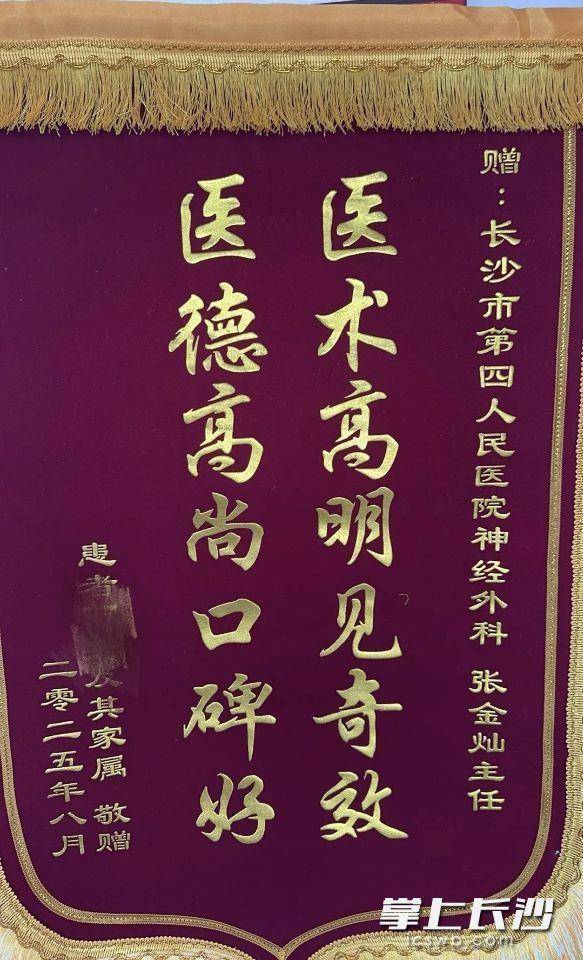 赠：长沙市第四人民医院神经外科 张金灿主任
医术高明见奇效
医德高尚口碑好
患者 及其家属 敬赠
二零二五年八月
掌上长沙
icswb.com